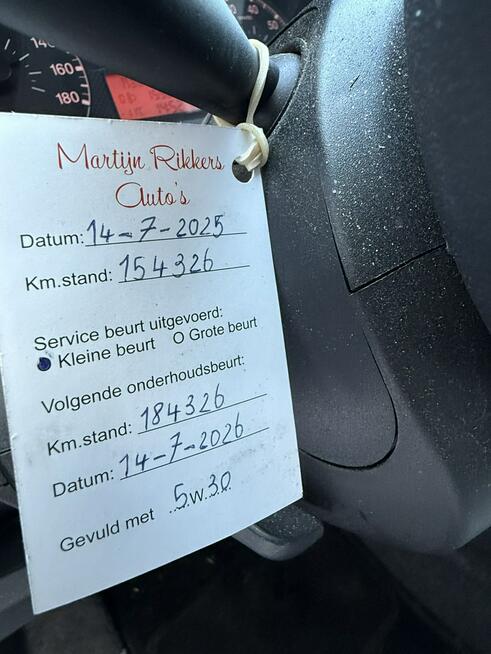 140
160
180
50
Martijn Rikkers
Auto's
Datum: 14-7-2025
Km.stand: 154326
Service beurt uitgevoerd:
Kleine beurt O Grote beurt
Volgende onderhoudsbeurt:
Km.stand: 184326
Datum: 14-7-2026
Gevuld met 5.W.30